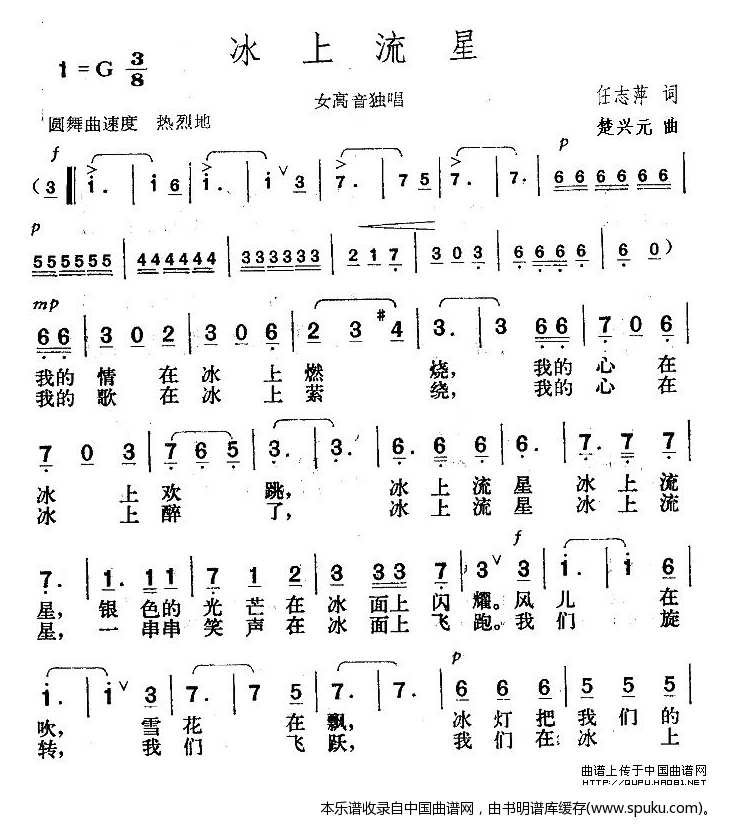 冰上流星
1=G 3/8
女高音独唱
任志萍 词
圆舞曲速度 热烈地
楚兴元 曲
f p
( 3 i. i 6 i. i ∨ 3 7. 7 5 7. 7. 6 6 6 6 6 6
p
555555 444444 333333 2 1 7 3 0 3 6 6 6 6 6 0 )
mp
6 6 3 0 2 3 0 6 2 3 #4 3. 3 6 6 7 0 6
我的 情 在 冰 上 燃 烧, 我的 心 在
我的 歌 在 冰 上 萦 绕, 我的 心 在
7 0 3 7 6 5 3. 3. 6. 6 6 6 6. 7. 7 7
冰 上 欢 跳, 冰 上 流 星 冰 上 流
冰 上 醉 了, 冰 上 流 星 冰 上 流
f
7. 1. 1 1 7 1 2 3 3 3 7 3 ∨ 3 i. i 6
星, 银 色的 光 芒 在 冰 面上 闪 耀。风 儿 在
星, 一 串串 笑 声 在 冰 面上 飞 跑。我 们 旋
p
i. i ∨ 3 7. 7 5 7. 7. 6 6 6 5 5 5
吹, 雪 花 在 飘, 冰 灯 把 我 们 的
转, 我 们 飞 跃, 我 们 在 冰 上
曲谱上传于中国曲谱网
HTTP://QUPU.HAO81.NET
本乐谱收录自中国曲谱网，由书明谱库缓存(www.spuku.com)。